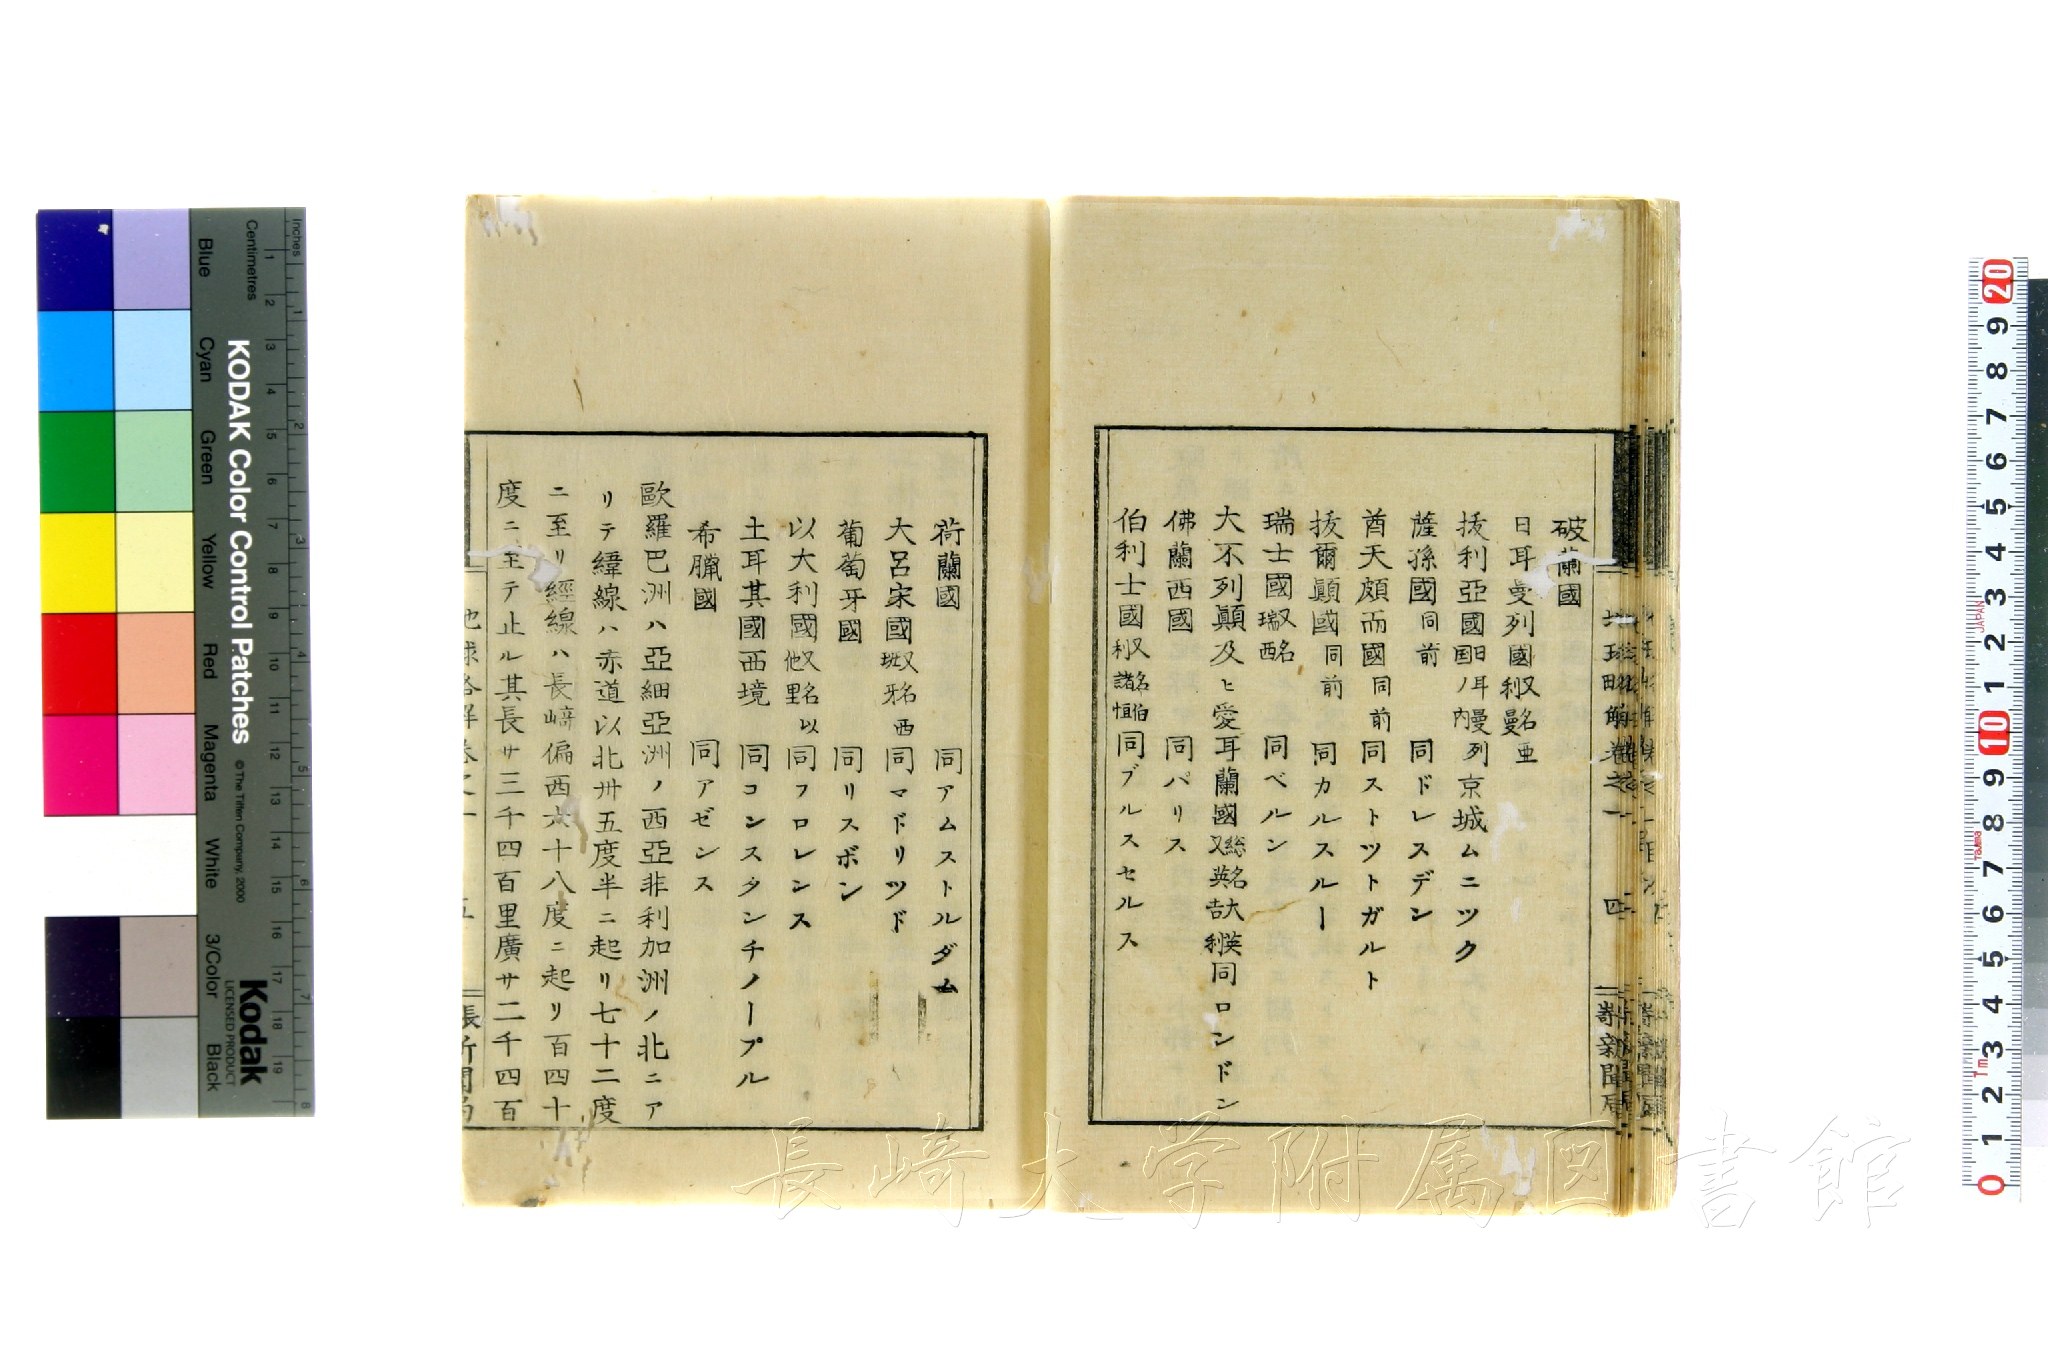 破蘭國
日耳曼列國又名亜利曼
拔利亞國日耳曼列国ノ内 京城ムニツク
薩孫國同前 同ドレスデン
酋天頗而國同前 同ストツトガルト
拔爾顚國同前 同カルスルー
瑞士國又名瑞西 同ベルン
大不列顚及ヒ愛耳蘭國総名大英又英吉利 同ロンドン
佛蘭西國 同パリス
伯利士國又名伯利諸恒 同ブルスセルス
荷蘭國 同アムストルダム
大呂宋國又名西班牙 同マドリツド
葡萄牙國 同リスボン
以大利國又名以他里 同フロレンス
土耳其國西境 同コンスタンチノープル
希臘國 同アゼンス
歐羅巴洲ハ亞細亞洲ノ西亞非利加洲ノ北ニア
リテ緯線ハ赤道以北卅五度半ニ起リ七十二度
ニ至リ經線ハ長﨑偏西六十八度ニ起リ百四十
度ニ至テ止ル其長サ三千四百里廣サ二千四百
地球略解卷之一 四
新聞局
KODAK Color Control Patches
© The Tiffen Company, 2000
Kodak
LICENSED PRODUCT
Inches
Centimetres
Blue
Cyan
Green
Yellow
Red
Magenta
White
3/Color
Black
長崎大学附属図書館
JAPAN
Tajima